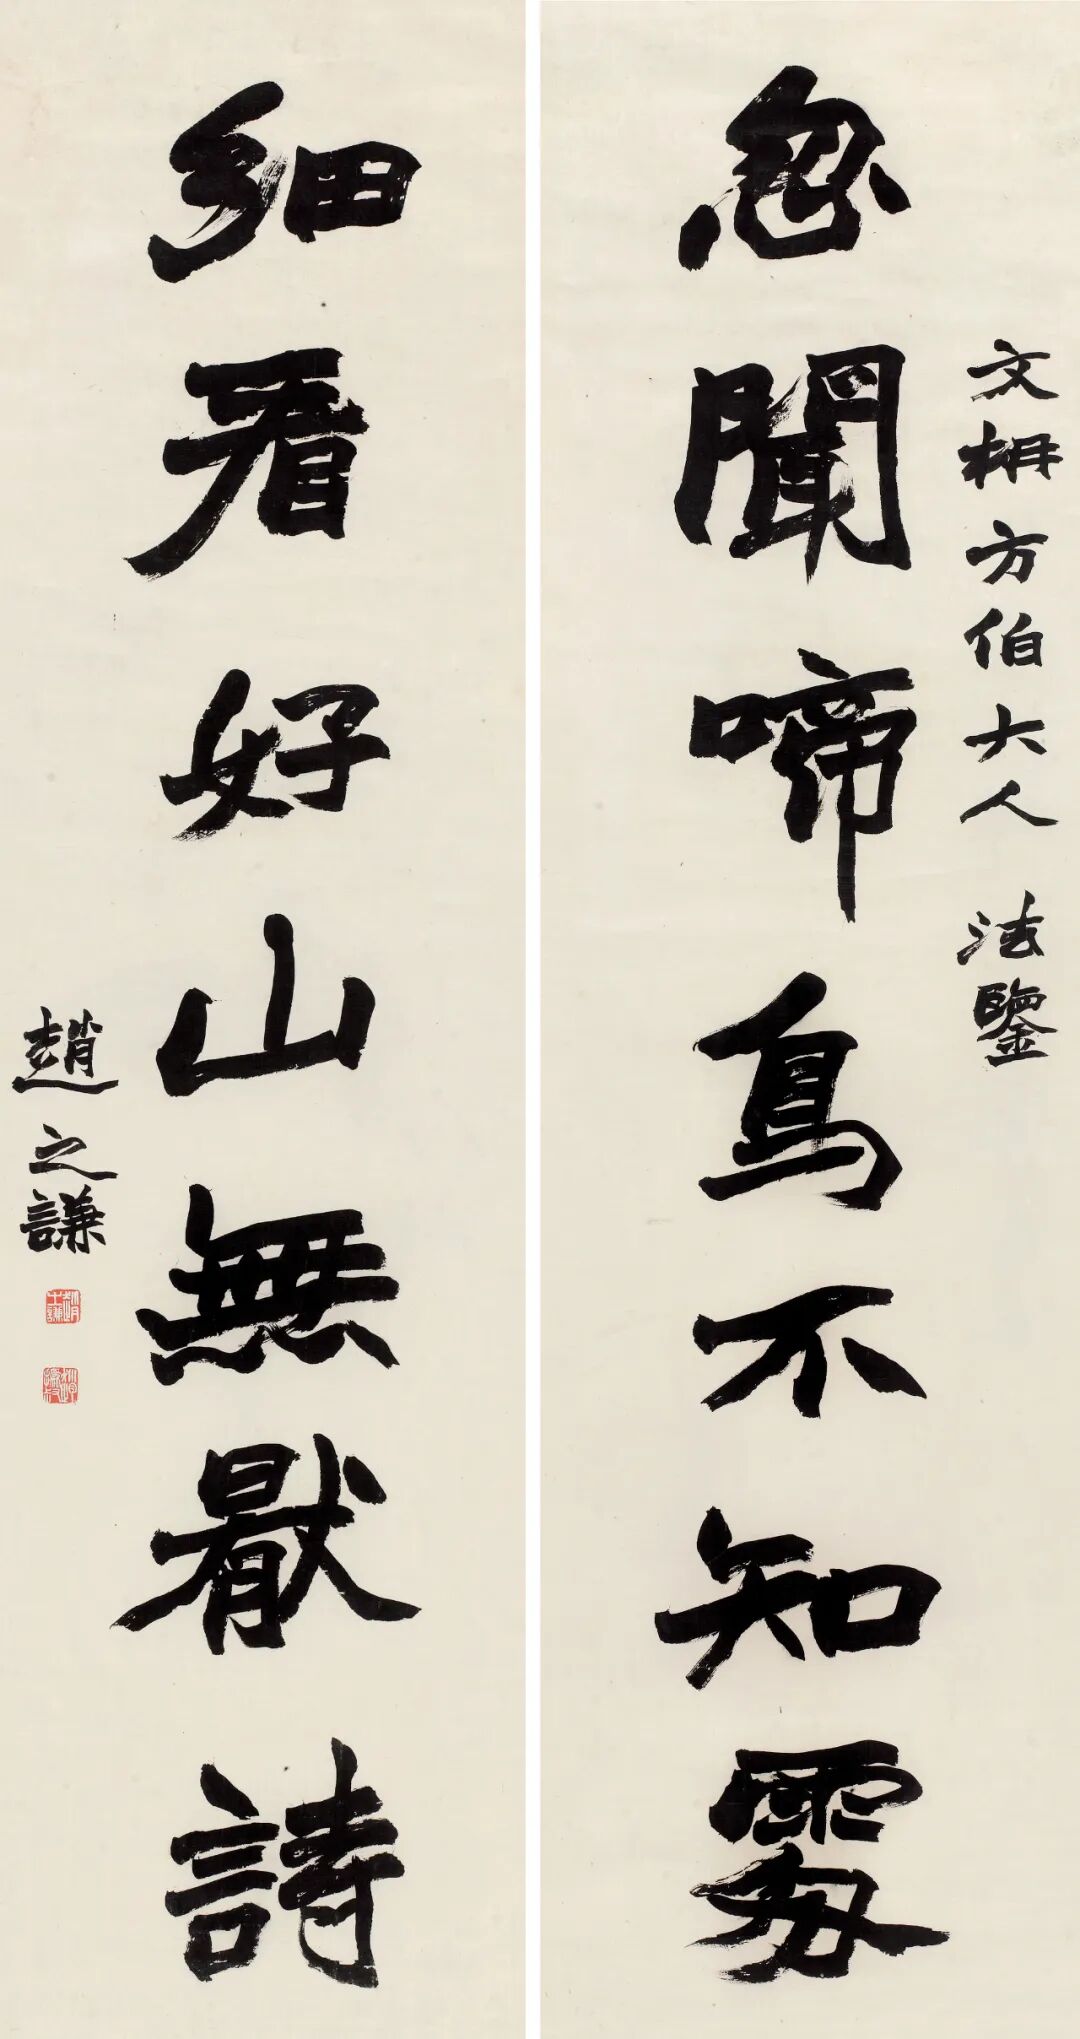 文枏方伯大人 法鑒
忽聞啼鳥不知處
細看好山無猒詩
趙之謙